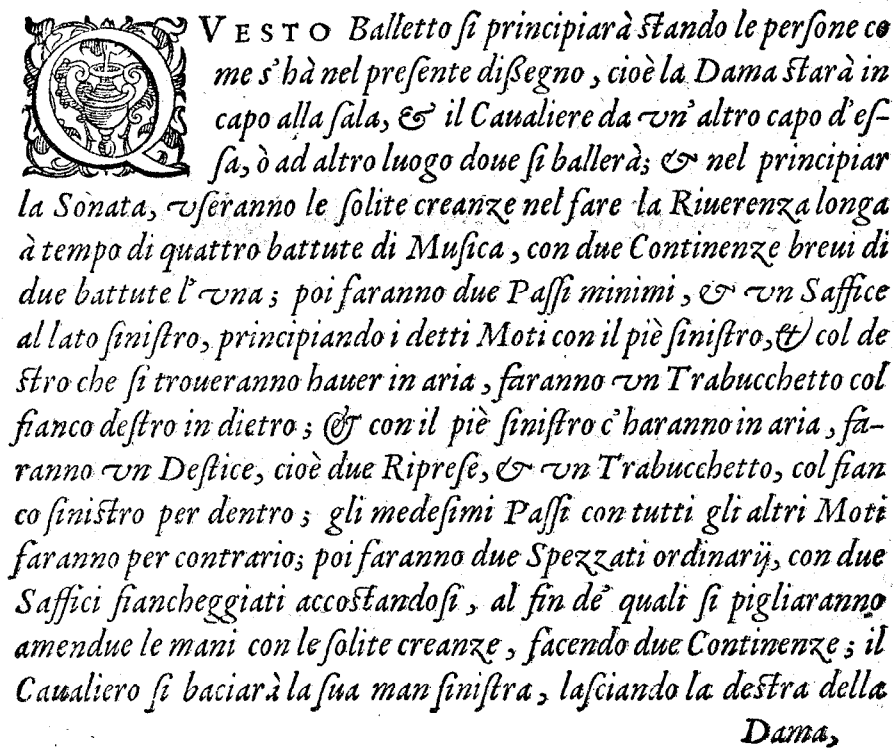 QVESTO Balletto ſi principiarà ſtando le perſone co
me s'hà nel preſente diſſegno, cioè la Dama ſtarà in
capo alla ſala, & il Caualiere da vn'altro capo d'eſ-
ſa, ò ad altro luogo doue ſi ballerà; & nel principiar
la Sonata, vſeranno le ſolite creanze nel fare la Riuerenza longa
à tempo di quattro battute di Muſica, con due Continenze breui di
due battute l'vna; poi faranno due Paſſi minimi, & vn Saffice
al lato ſiniſtro, principiando i detti Moti con il piè ſiniſtro, & col de
ſtro che ſi troueranno hauer in aria, faranno vn Trabucchetto col
fianco deſtro in dietro; & con il piè ſiniſtro c'haranno in aria, fa-
ranno vn Deſtice, cioè due Ripreſe, & vn Trabucchetto, col fian
co ſiniſtro per dentro; gli medeſimi Paſſi con tutti gli altri Moti
faranno per contrario; poi faranno due Spezzati ordinarij, con due
Saffici fiancheggiati accoſtandoſi, al fin de' quali ſi pigliaranno
amendue le mani con le ſolite creanze, facendo due Continenze; il
Caualiero ſi baciarà la ſua man ſiniſtra, laſciando la deſtra della
Dama,